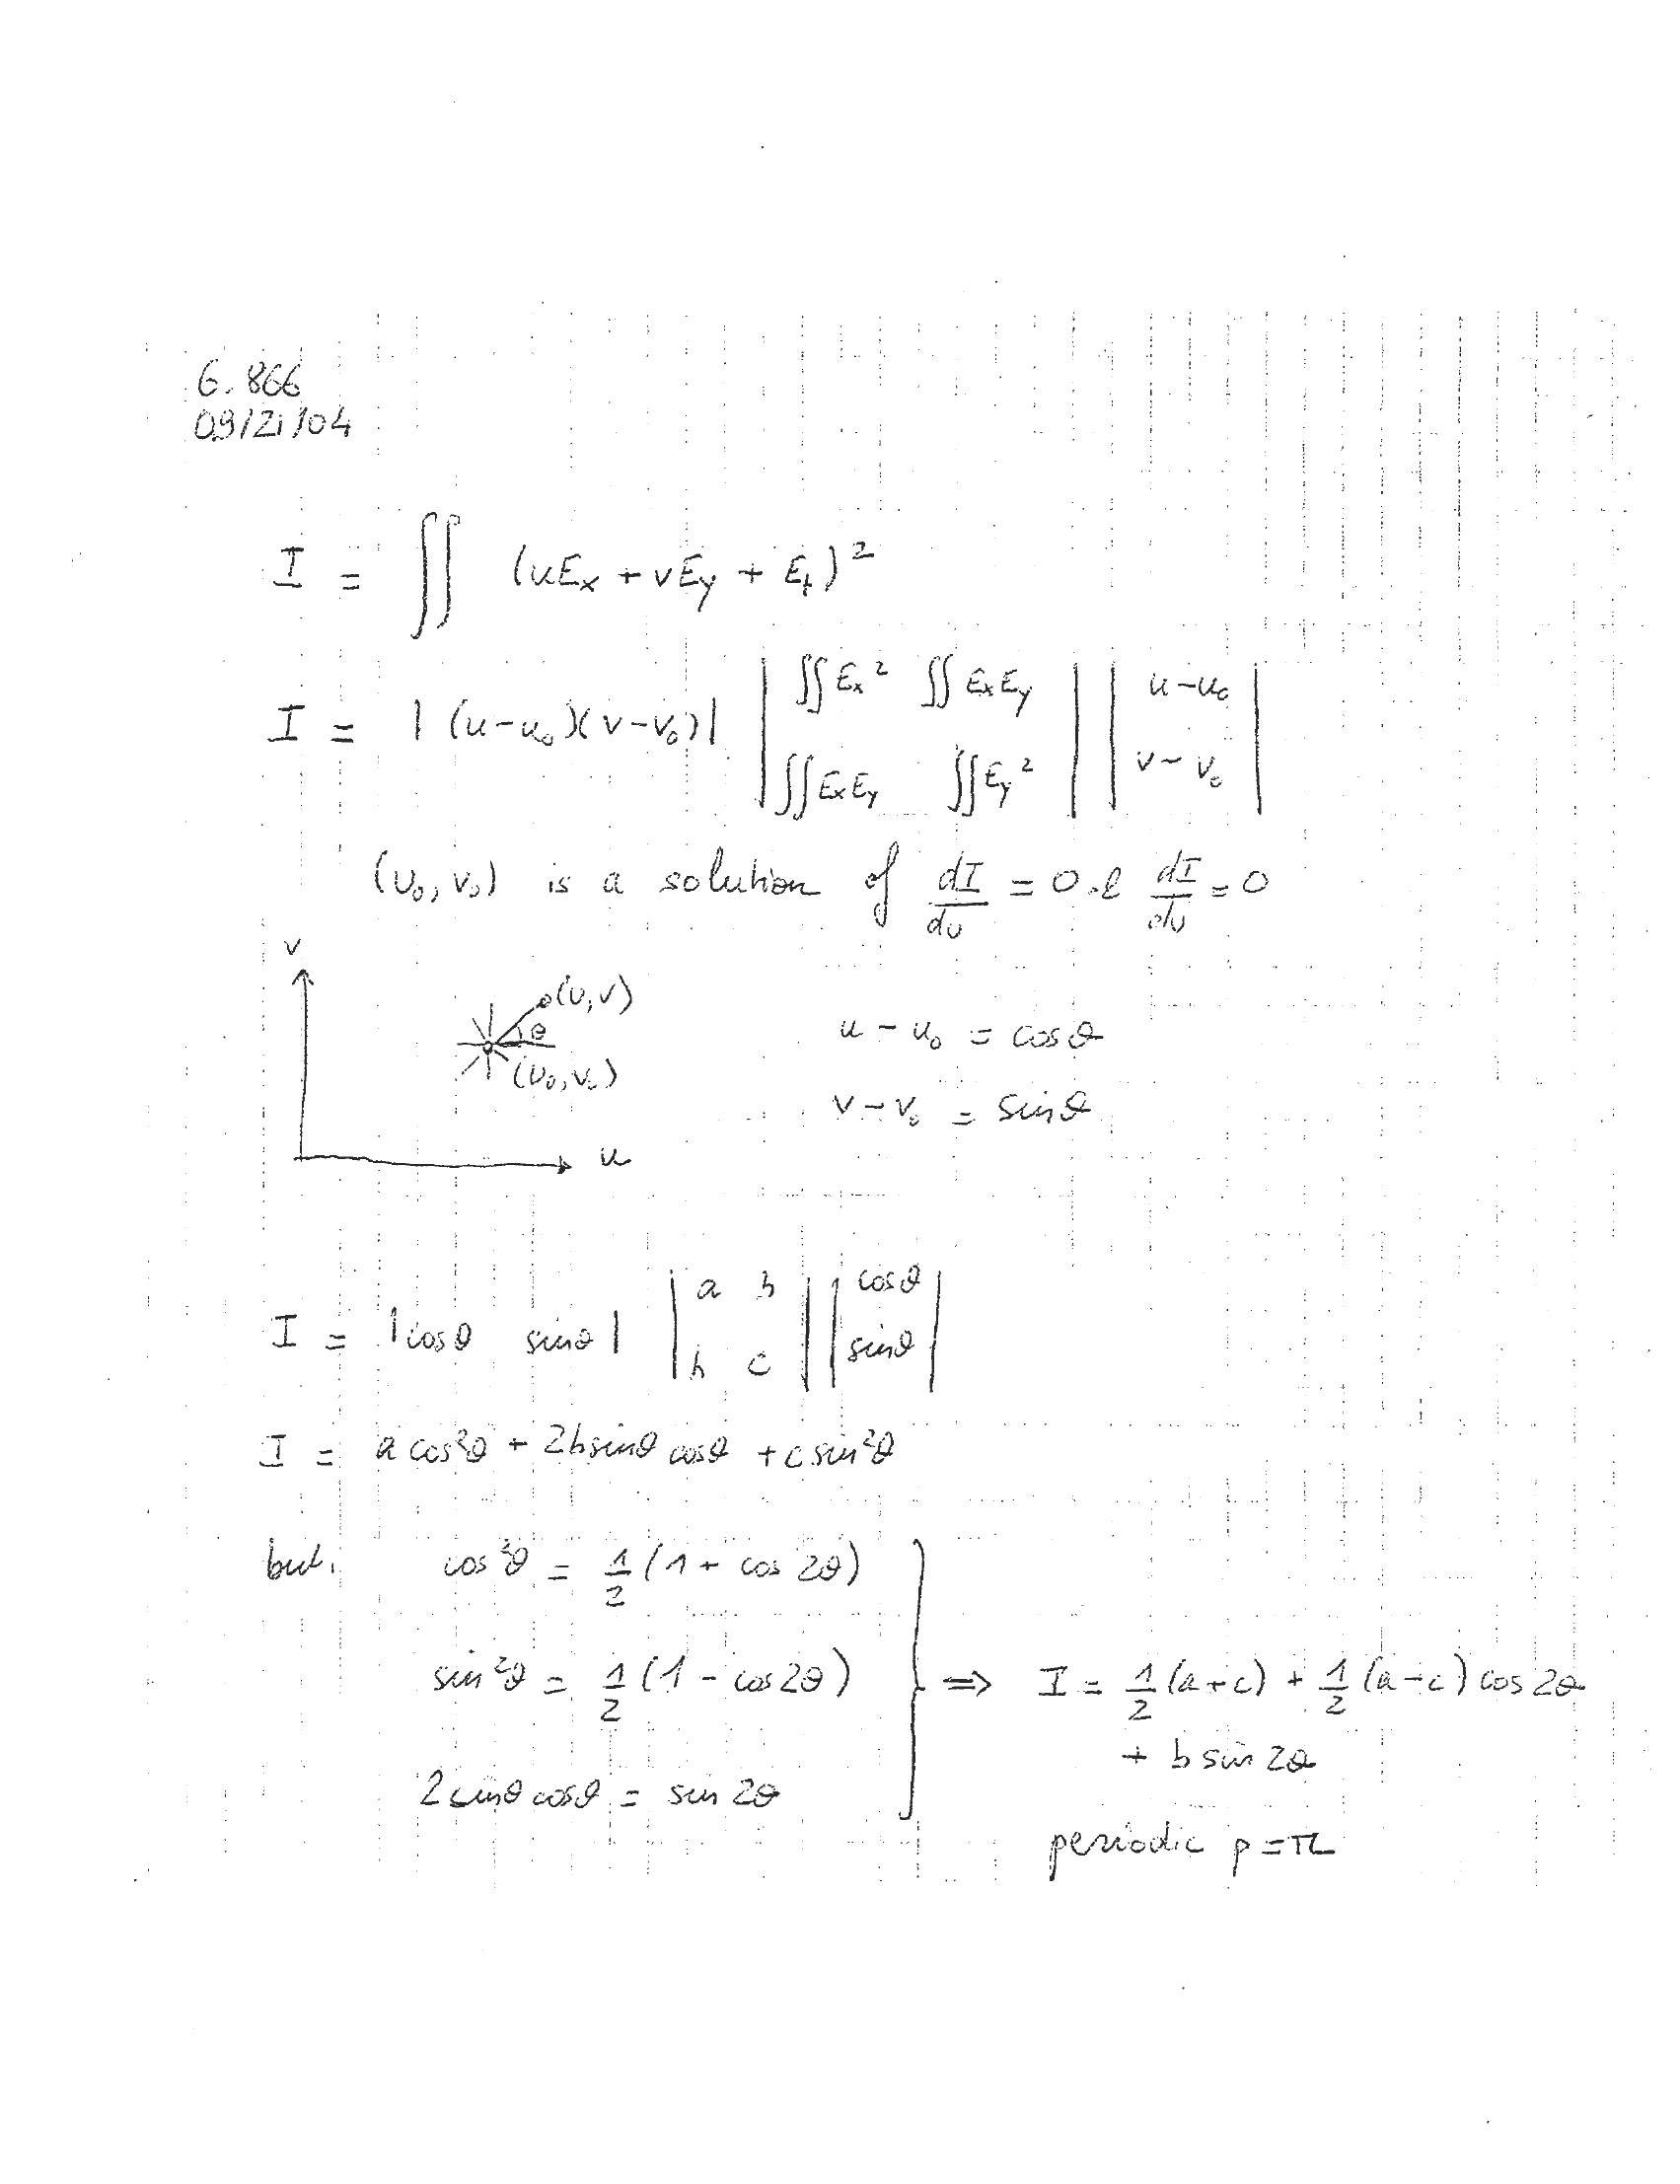 6.866
09/21/04
I = ∬ (uEx + vEy + Et)²
I = | (u-u₀)(v-v₀) | | ∬Ex² ∬ExEy | | u-u₀ |
| ∬ExEy ∬Ey² | | v-v₀ |
(u₀, v₀) is a solution of dI/du = 0 & dI/dv = 0
v
(u,v)
θ
(u₀,v₀)
u
u - u₀ = cosθ
v - v₀ = sinθ
I = | cosθ sinθ | | a b | | cosθ |
| b c | | sinθ |
I = a cos²θ + 2b sinθ cosθ + c sin²θ
but,
cos²θ = 1/2 (1 + cos 2θ)
sin²θ = 1/2 (1 - cos 2θ)
2 sinθ cosθ = sin 2θ
⇒ I = 1/2 (a+c) + 1/2 (a-c) cos 2θ
+ b sin 2θ
periodic p = π